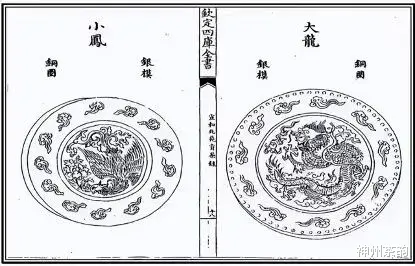 大龍
銅圈
銀模
欽定四庫全書
宣和北苑貢茶錄
小鳳
銀模
銅圈
神州